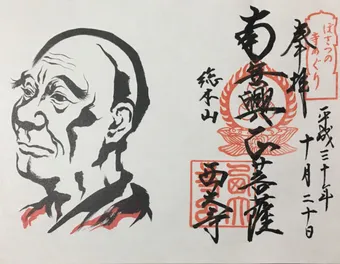 奉拝
ぼさつの
寺めぐり
平成三十年
十月二十日
南無興正菩薩
総本山
西大寺